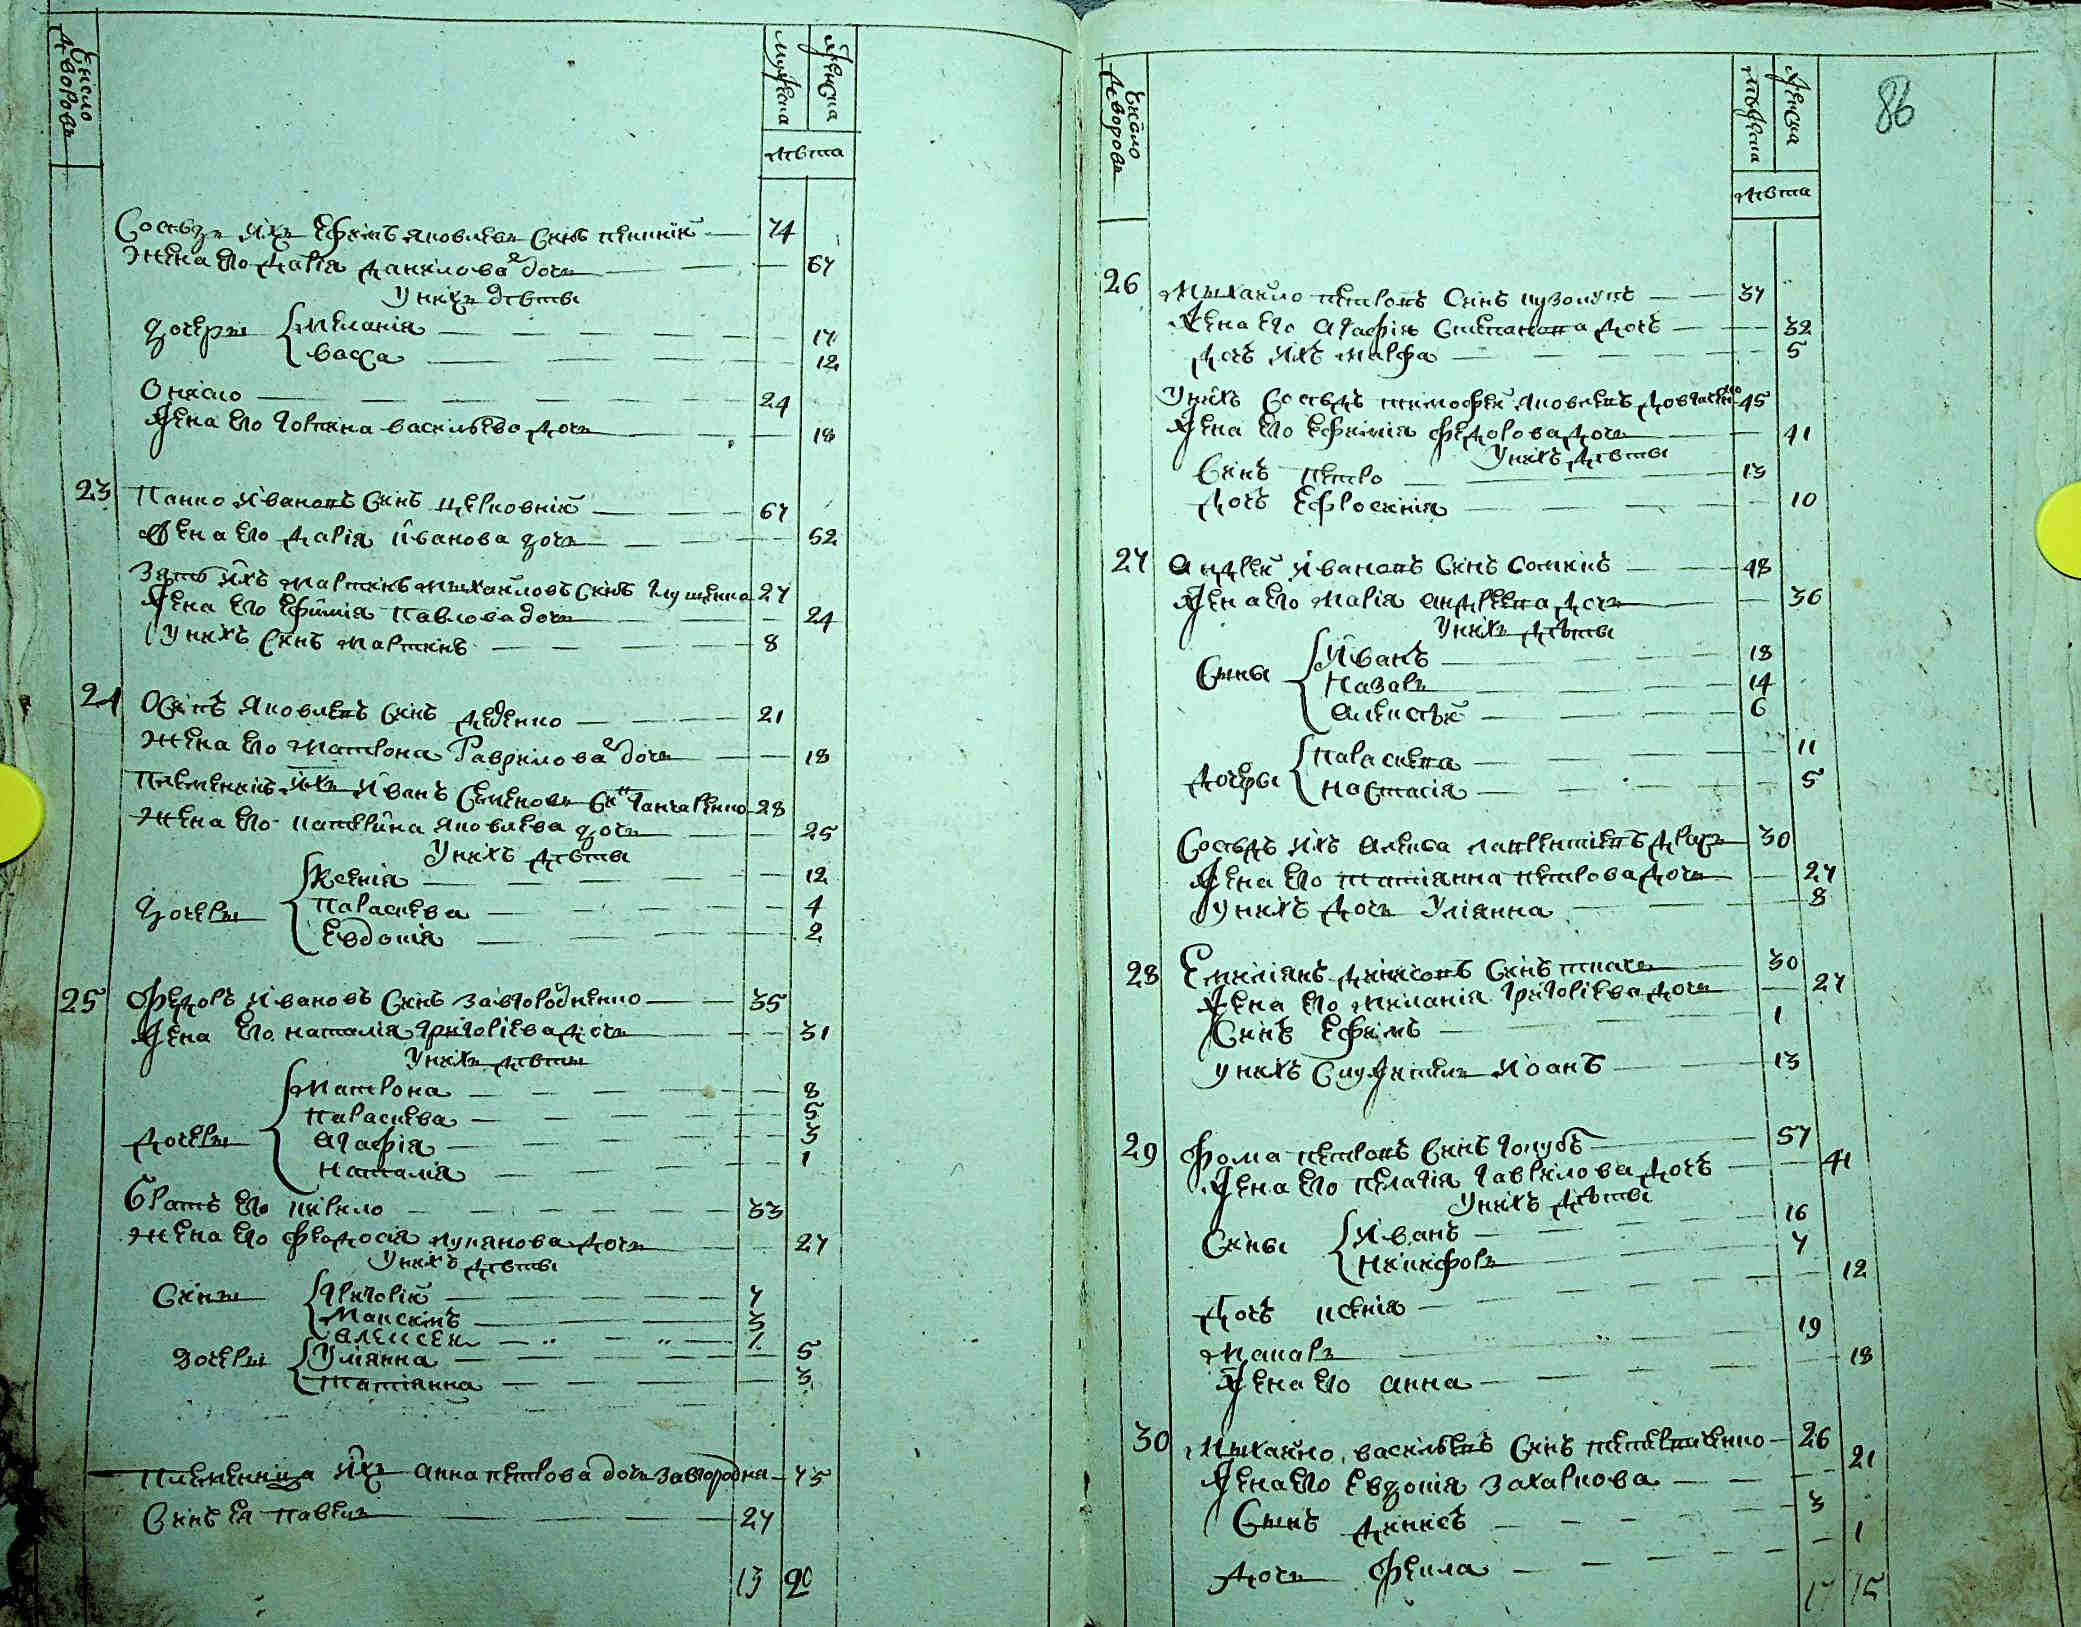 Число дворовъ
мужеска
женска
лѣта
Сосѣдъ ихъ Ефимъ Яковлевъ синъ
74
жена его Дарія Данилова дочъ
67
у нихъ дѣти
дочери
Меланія
17
Васса
12
24
жена его Василѣва дочъ
18
23
Панко Ивановъ синъ Церковній
67
жена его Дарія Иванова дочъ
52
Зять ихъ Мартинъ Михайловъ синъ
27
жена его Ефимія Павлова дочъ
24
у нихъ синъ Мартинъ
8
24
Осипъ Яковлевъ синъ
21
жена его Матрона Гаврилова дочъ
18
Племенникъ ихъ Иванъ Семеновъ синъ Гончаренко
28
жена его Катерина Яковлева дочъ
25
у нихъ дѣти
дочери
Ксенія
12
Параскева
4
Евдокія
2
25
Федоръ Ивановъ синъ Завгородненко
35
жена его Наталія Григоріева дочъ
31
у нихъ дѣти
дочери
Матрона
8
Параскева
5
Агафія
3
Наталія
1
Братъ его Кирило
33
жена его Феодосія Лукянова дочъ
27
у нихъ дѣти
сини
Григорій
7
Максимъ
3
Алексей
1
дочери
Уліянна
5
Татіянна
3
Племенница ихъ Анна Петрова дочъ Завгородна
45
Синъ ея Павелъ
27
13
20
86
Число дворовъ
мужеска
женска
лѣта
26
Михайло Петровъ синъ
37
жена его Агафія Степанова дочъ
32
дочъ ихъ Марфа
5
у нихъ сосѣдъ Тимофей Яковлевъ
45
жена его Ефимія Федорова дочъ
41
у нихъ дѣти
синъ Петро
13
дочъ Ефросинія
10
27
Андрей Ивановъ синъ Соткинъ
48
жена его Марія Андреева дочъ
36
у нихъ дѣти
сыны
Иванъ
18
Назаръ
14
Алексѣй
6
дочеры
Параскева
11
Настасія
5
Сосѣдъ ихъ Алекса Лаврентіевъ
30
жена его Татіянна Петрова дочъ
27
у нихъ дочъ Уліянна
8
28
Емиліянъ Денисовъ синъ Ткачъ
30
жена его Миланія Григоріева дочъ
27
синъ Ефимъ
1
у нихъ служитель Иоанъ
13
29
Фома Петровъ синъ Голубъ
57
жена его Пелагія Гаврилова дочъ
41
у нихъ дѣти
сини
Иванъ
16
Никифоръ
7
дочъ Ксенія
12
Макаръ
19
жена его Анна
18
30
Михайло Василѣевъ синъ
26
жена его Евдокія Захаркова
21
сынъ Денисъ
3
дочъ Фекла
1
17
15